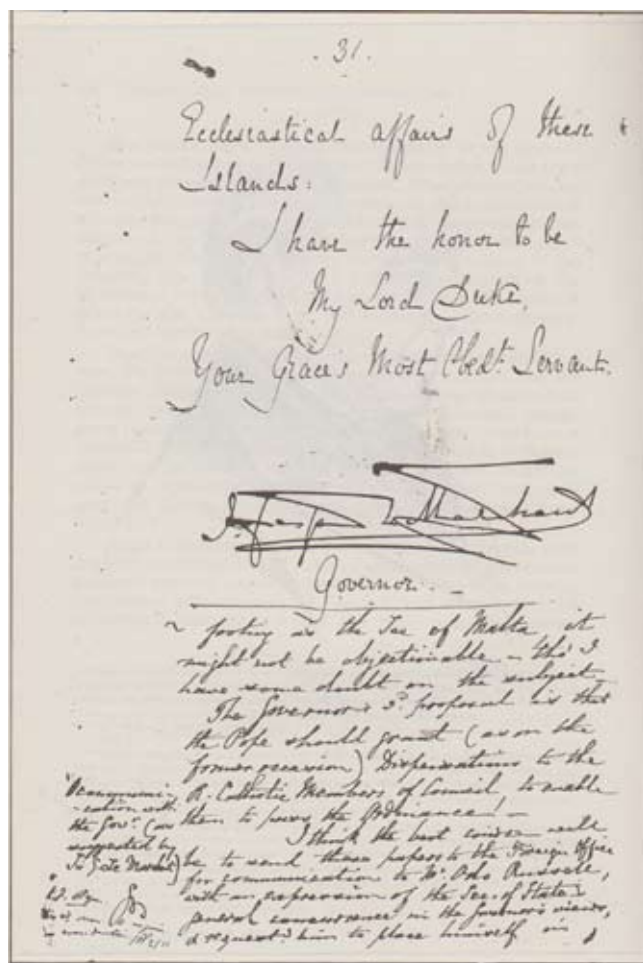 . 31.
Ecclesiastical affairs of these
Islands:
I have the honor to be
My Lord Duke,
Your Grace's Most Obedt. Servant.
J. Gaspard Le Marchant
Governor. -
footing as the See of Malta, it
might not be objectionable - tho' I
have some doubt on the subject.
The Governor's 3d. proposal is that
the Pope should grant (as on the
former occasion) Dispensations to the
R. Catholic Members of Council to enable
them to pass the Ordinance! -
I think the best course will
be to send these papers to the Foreign Office
for communication to Mr. Odo Russell,
with an expression of the Sec. of State's
general concurrence in the Governor's views,
& request him to place himself in
communi-
-cation with
the Govr. (as
suggested by
Sir G. Le Marchant)